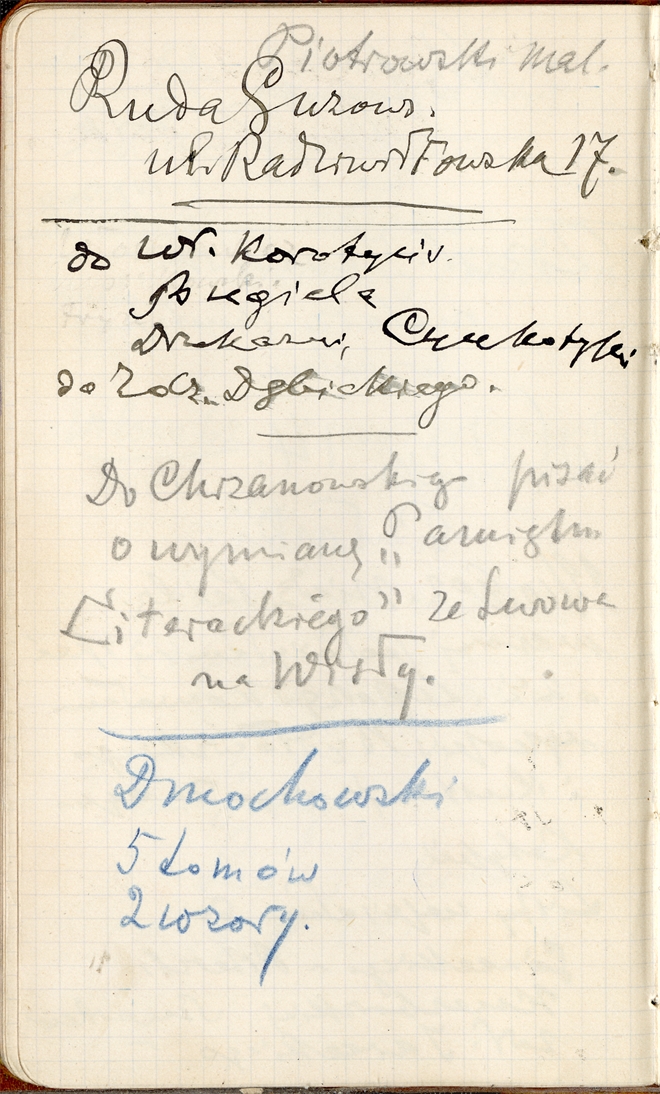 Piotrowski mal.
Ruda Guzows.
ul. Radziwiłłowska 17.
do Wł. Korotyńs.
Bugiela
Drukarni,
do Zdz. Dębickiego.
Do Chrzanowskiego pisać
o wymianę „Pamiętn.
Literackiego” ze Lwowa
na Wisłę.
Dmochowski
5 tomów
2 wzory.